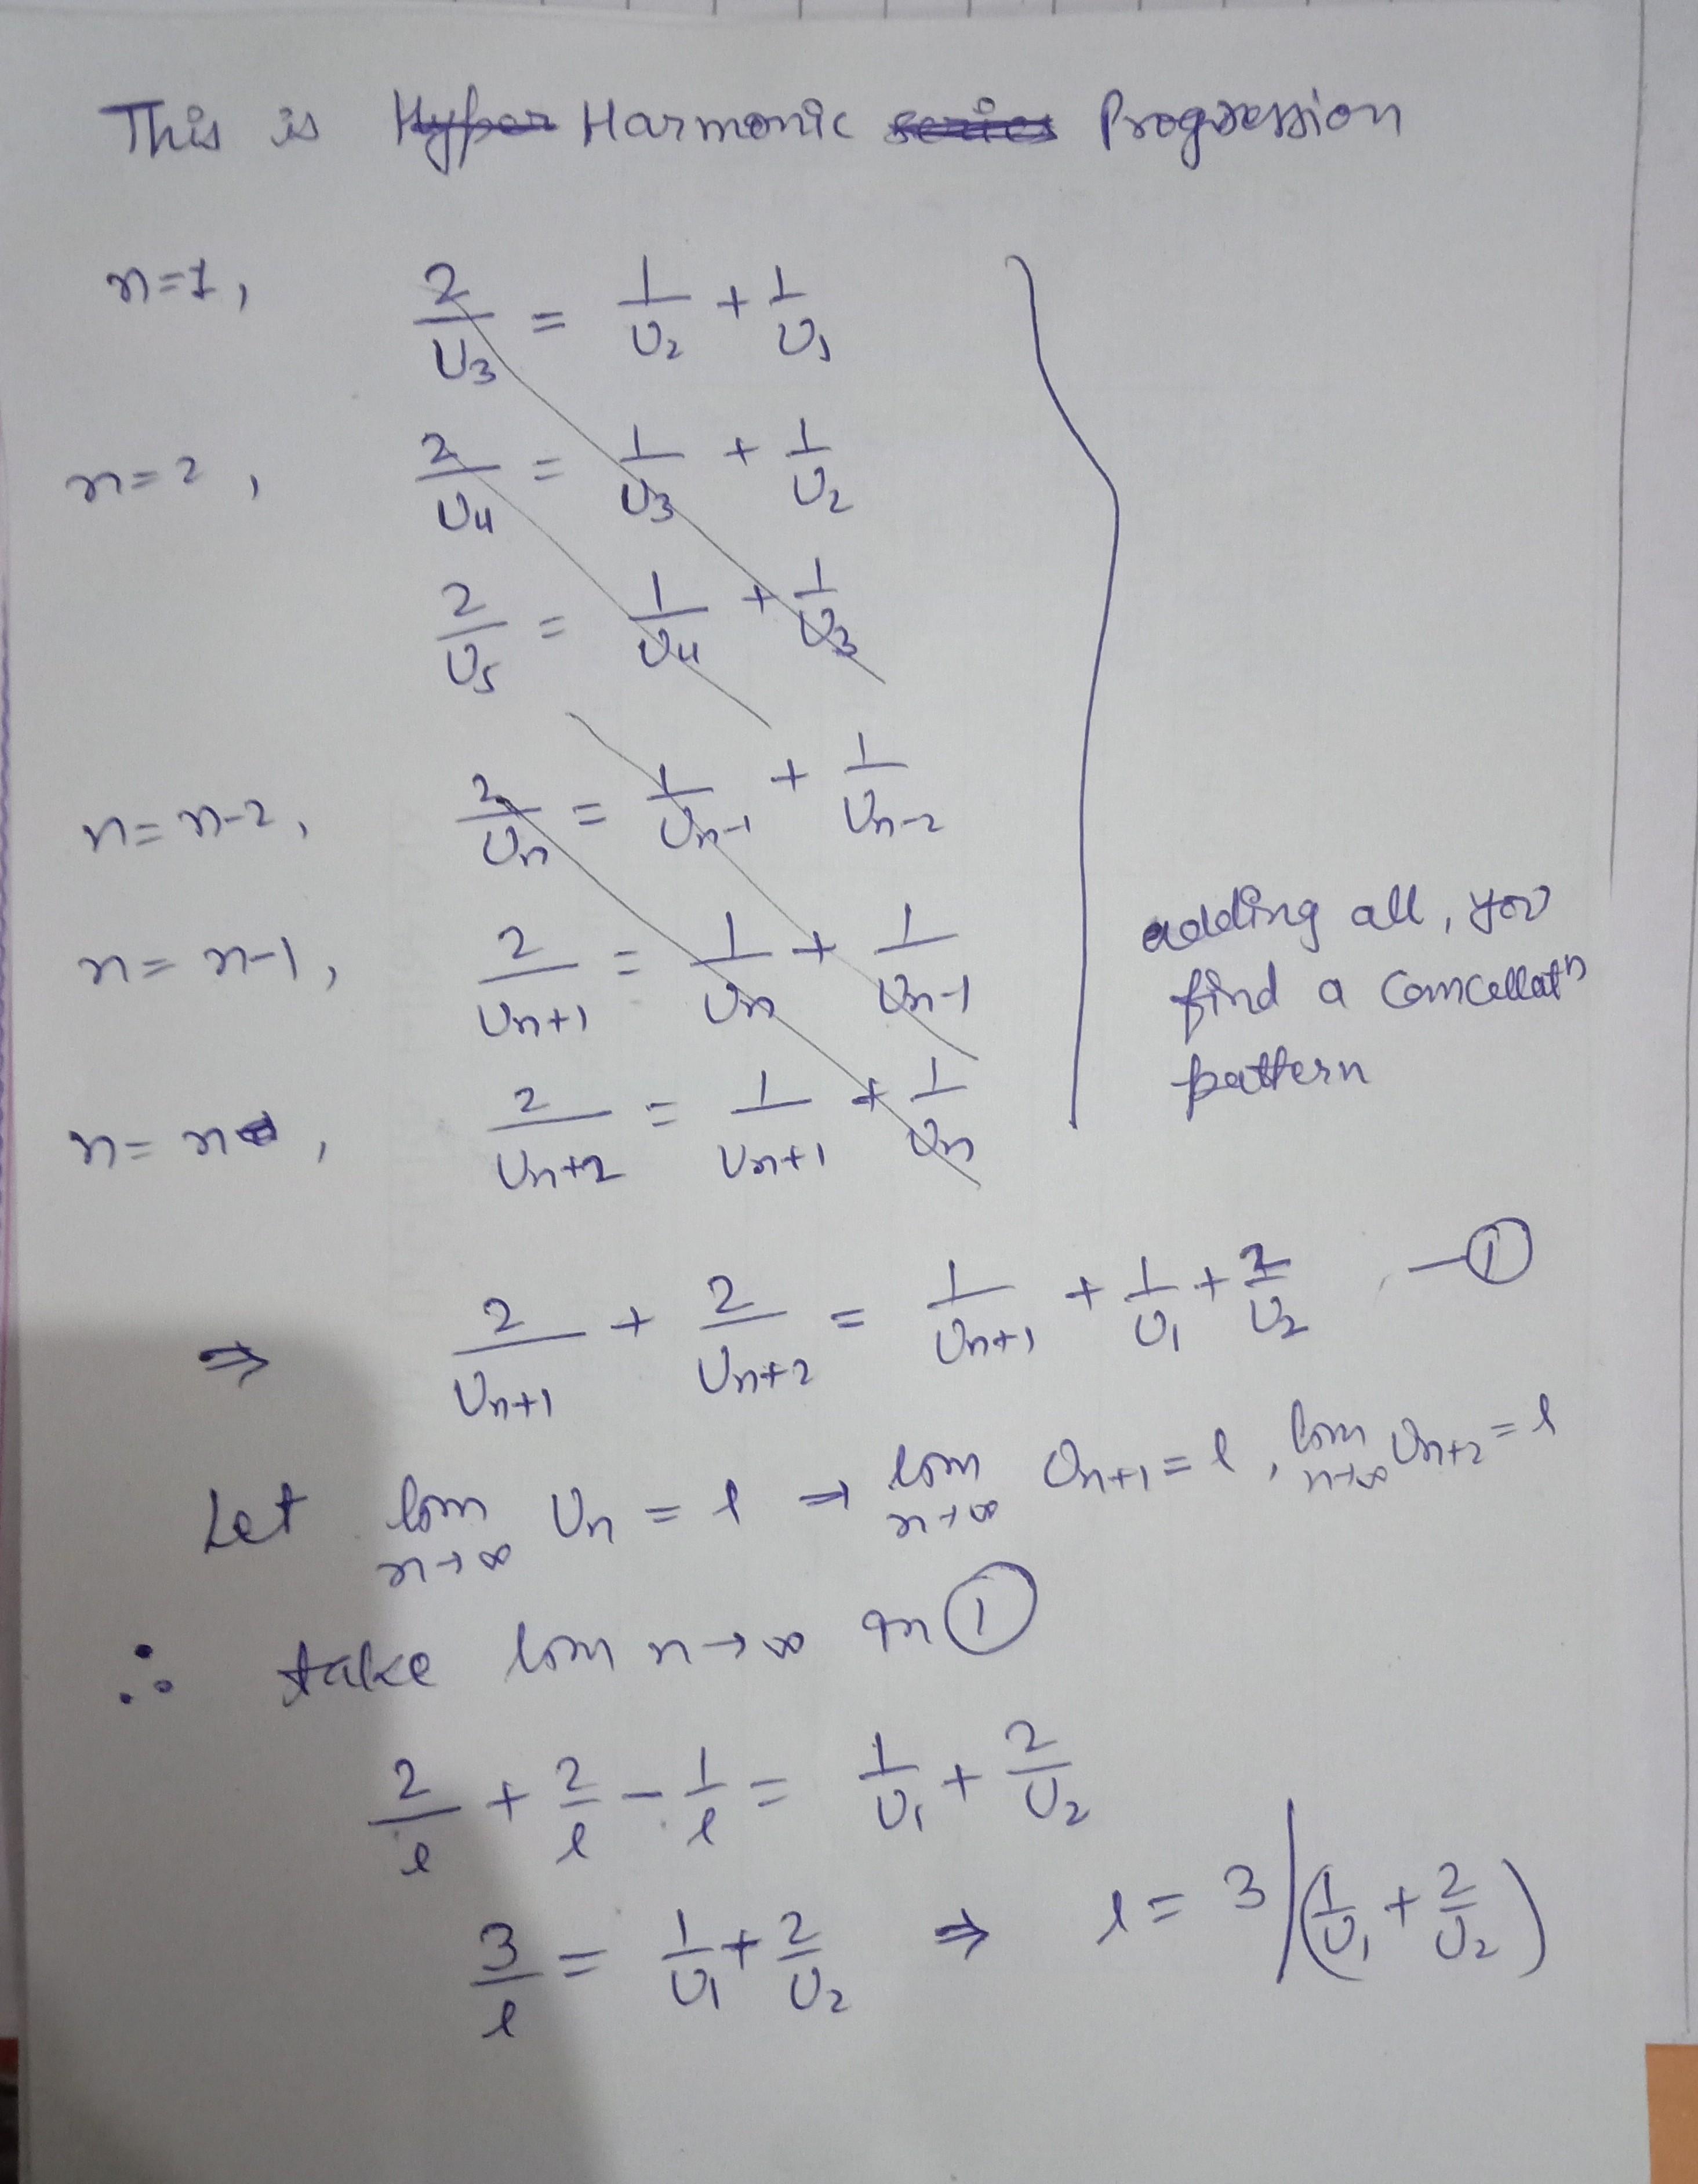 This is Hyper Harmonic series Progression
n=1, 2/U3 = 1/U2 + 1/U1
n=2, 2/U4 = 1/U3 + 1/U2
2/U5 = 1/U4 + 1/U3
n=n-2, 2/Un = 1/Un-1 + 1/Un-2
n=n-1, 2/Un+1 = 1/Un + 1/Un-1
adding all, you
find a Cancellatn
pattern
n=n, 2/Un+2 = 1/Un+1 + 1/Un
⇒ 2/Un+1 + 2/Un+2 = 1/Un+1 + 1/U1 + 2/U2 —①
Let lim n→∞ Un = l ⇒ lim n→∞ Un+1 = l, lim n→∞ Un+2 = l
∴ take lim n→∞ in ①
2/l + 2/l - 1/l = 1/U1 + 2/U2
3/l = 1/U1 + 2/U2 ⇒ l = 3/(1/U1 + 2/U2)